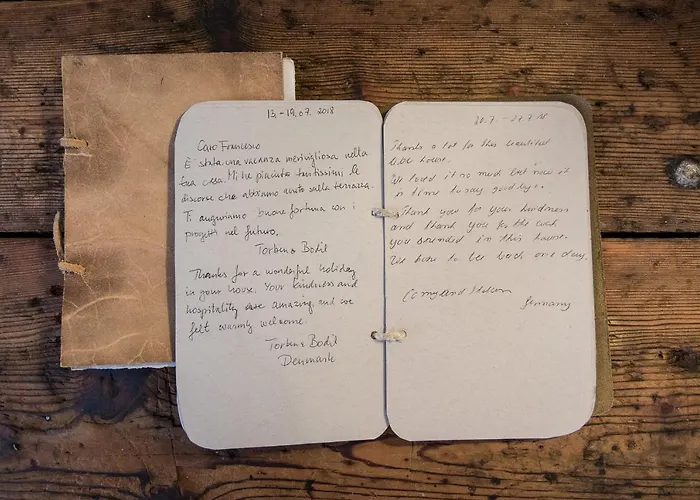 13.-19.07. 2018
Caro Francesco
È stata una vacanza meravigliosa nella
tua casa. Mi ha piaciuto tantissimi le
discorse che abbiamo avuto sulla terrazza.
Ti auguriamo buone fortuna con i
progetti nel futuro.
Torben & Bodil
Thanks for a wonderful holiday
in your house. Your kindness and
hospitality are amazing and we
felt warmly welcome
Torben & Bodil
Denmark
Thanks a lot for this beautiful
little house.
We loved it so much but now it
is time to say goodbye.
Thank you for your kindness
and thank you for the work
you in this house.
We hope to be back one day.
Germany